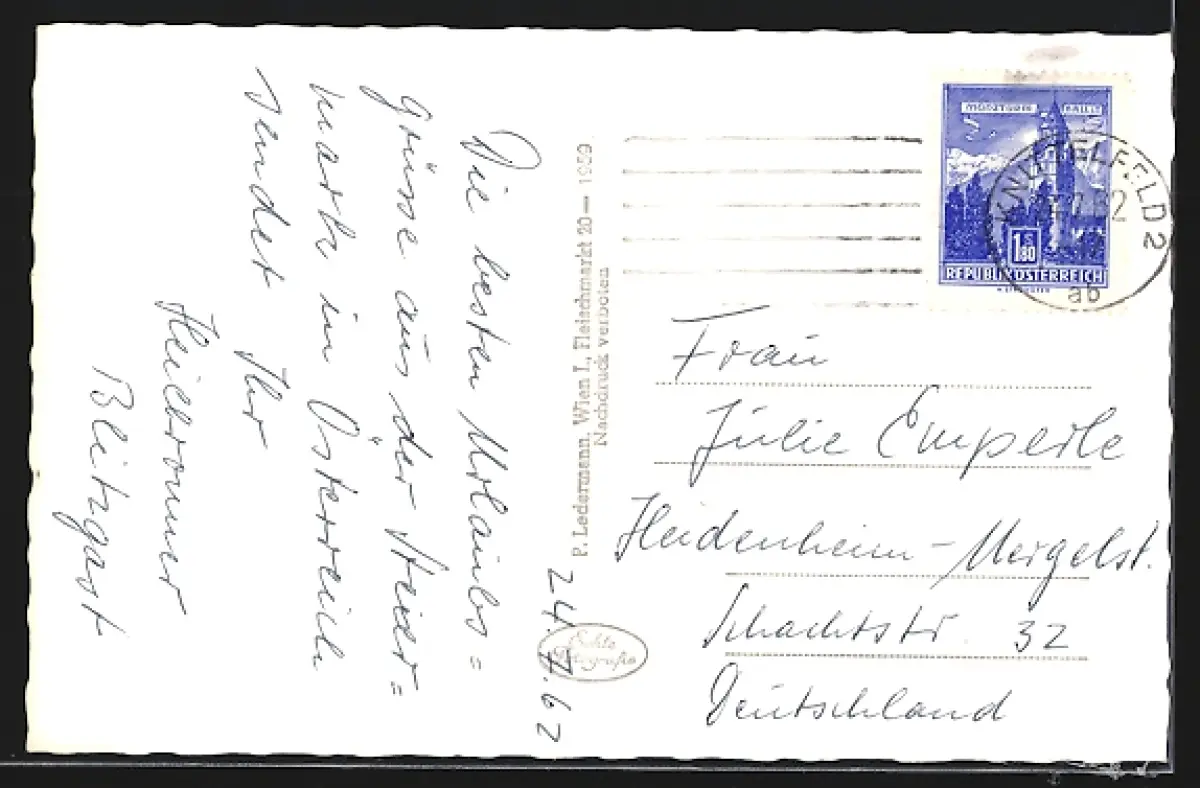 24.7.62
Die besten Urlaubs=
grüsse aus der Steier=
mark in Österreich
sendet Ihr
Heilbronner
Blitzgast
P. Ledermann, Wien I., Fleischmarkt 20 — 1959
Nachdruck verboten
Echte
Fotografie
KNITTELFELD 2
ab
1.80
REPUBLIK ÖSTERREICH
Frau
Julie Emperle
Heidenheim-Mergelst.
Schachtstr. 32
Deutschland